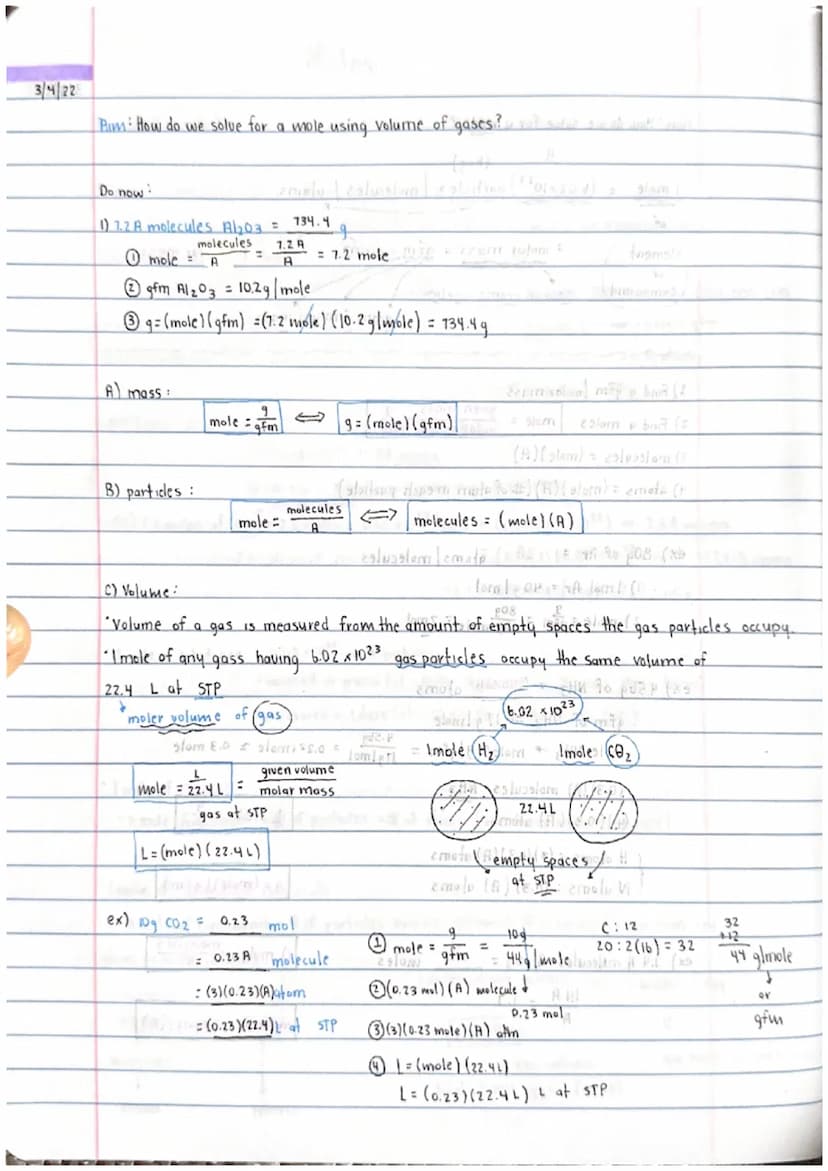 3/4/22
Aim: How do we solve for a mole using volume of gases?
Do now:
1) 7.2 A molecules Al2O3 = 734.4 g
① mole = molecules/A = 7.2 A/A = 7.2 mole
② gfm Al2O3 = 102g/mole
③ g=(mole)(gfm) =(7.2 mole)(10.2 g/mole) = 734.4g
A) mass:
mole = g/gfm ⟺ g=(mole)(gfm)
B) particles:
mole = molecules/A ⟺ molecules = (mole)(A)
C) Volume:
•Volume of a gas is measured from the amount of empty spaces the gas particles occupy.
•1 mole of any gass having 6.02 x 10^23 gas particles occupy the same volume of
22.4 L at STP
molar volume of gas
6.02 x 10^23
1 mole H2 1 mole CO2
mole = L/22.4L = given volume/molar mass
gas at STP
22.4L
L=(mole)(22.4L)
empty spaces
at STP
ex) 10g CO2 = 0.23 mol
= 0.23A molecule
= (3)(0.23)(A) atom
= (0.23)(22.4) L at STP
① mole = g/gfm = 10g/44g/mole
C: 12
2O: 2(16) = 32
32
+12
44 g/mole
or
gfm
② (0.23 mol)(A) molecule
0.23 mol
③ (3)(0.23 mole)(A) atm
④ L=(mole)(22.4L)
L=(0.23)(22.4L) L at STP